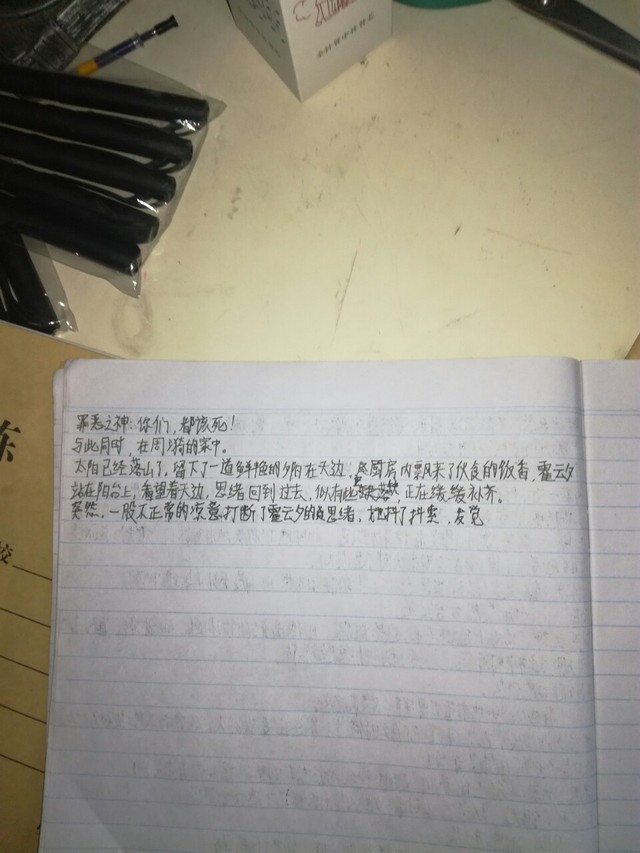 全针管中性笔芯
东
校
罪恶之神:你们,都该死!
与此同时,在周漪的家中。
太阳已经落山了,留下了一道鲜艳的夕阳在天边,厨房内飘来了伙食的饭香,霍云夕
站在阳台上,看望着天边,思绪回到过去,似有些缺处 正在缓缓补齐。
突然,一股不正常的凉意打断了霍云夕的思绪,她抖了抖 ,发觉